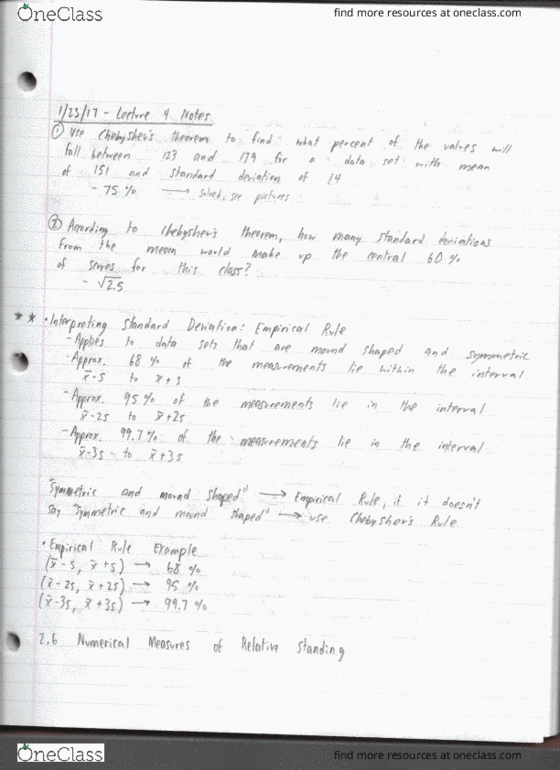 OneClass
find more resources at oneclass.com
1/23/17 - Lecture 4 Notes
① Use Chebyshev's theorem to find what percent of the values will
fall between 123 and 179 for a data set with mean
of 151 and standard deviation of 14
- 75% → solved, see pictures
② According to Chebyshev's theorem, how many standard deviations
from the mean would make up the central 60%
of scores for this class?
- √2.5
** • Interpreting Standard Deviation: Empirical Rule
- Applies to data sets that are mound shaped and symmetric
- Approx. 68% of the measurements lie within the interval
x̄-s to x̄+s
- Approx. 95% of the measurements lie in the interval
x̄-2s to x̄+2s
- Approx. 99.7% of the measurements lie in the interval
x̄-3s to x̄+3s
"Symmetric and mound shaped" → Empirical Rule, if it doesn't
say "symmetric and mound shaped" → use Chebyshev's Rule
• Empirical Rule Example
(x̄-s, x̄+s) → 68%
(x̄-2s, x̄+2s) → 95%
(x̄-3s, x̄+3s) → 99.7%
2.6 Numerical Measures of Relative Standing
OneClass
find more resources at oneclass.com